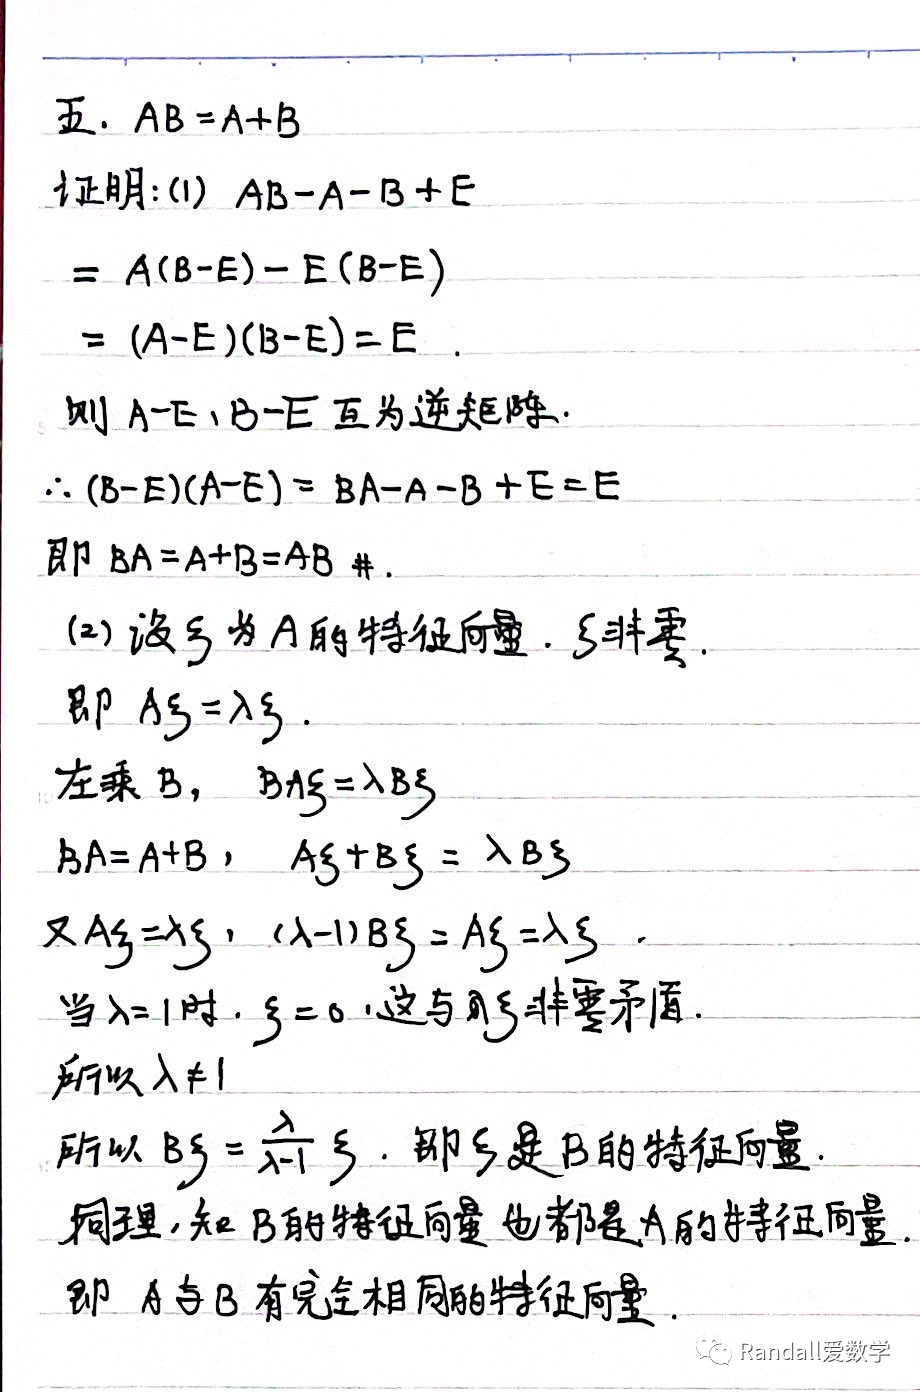 五. AB=A+B
证明:(1) AB-A-B+E
= A(B-E)-E(B-E)
= (A-E)(B-E)=E.
则 A-E、B-E 互为逆矩阵.
∴ (B-E)(A-E)= BA-A-B+E=E
即 BA=A+B=AB #.
(2) 设ξ为A的特征向量. ξ非零.
即 Aξ=λξ.
左乘 B, BAξ=λBξ
BA=A+B, Aξ+Bξ = λBξ
又Aξ=λξ, (λ-1)Bξ=Aξ=λξ.
当λ=1时. ξ=0,这与ξ非零矛盾.
所以 λ≠1
所以 Bξ=λ/(λ-1) ξ. 即ξ是B的特征向量.
同理,知B的特征向量也都是A的特征向量.
即 A与B有完全相同的特征向量.
Randall爱数学